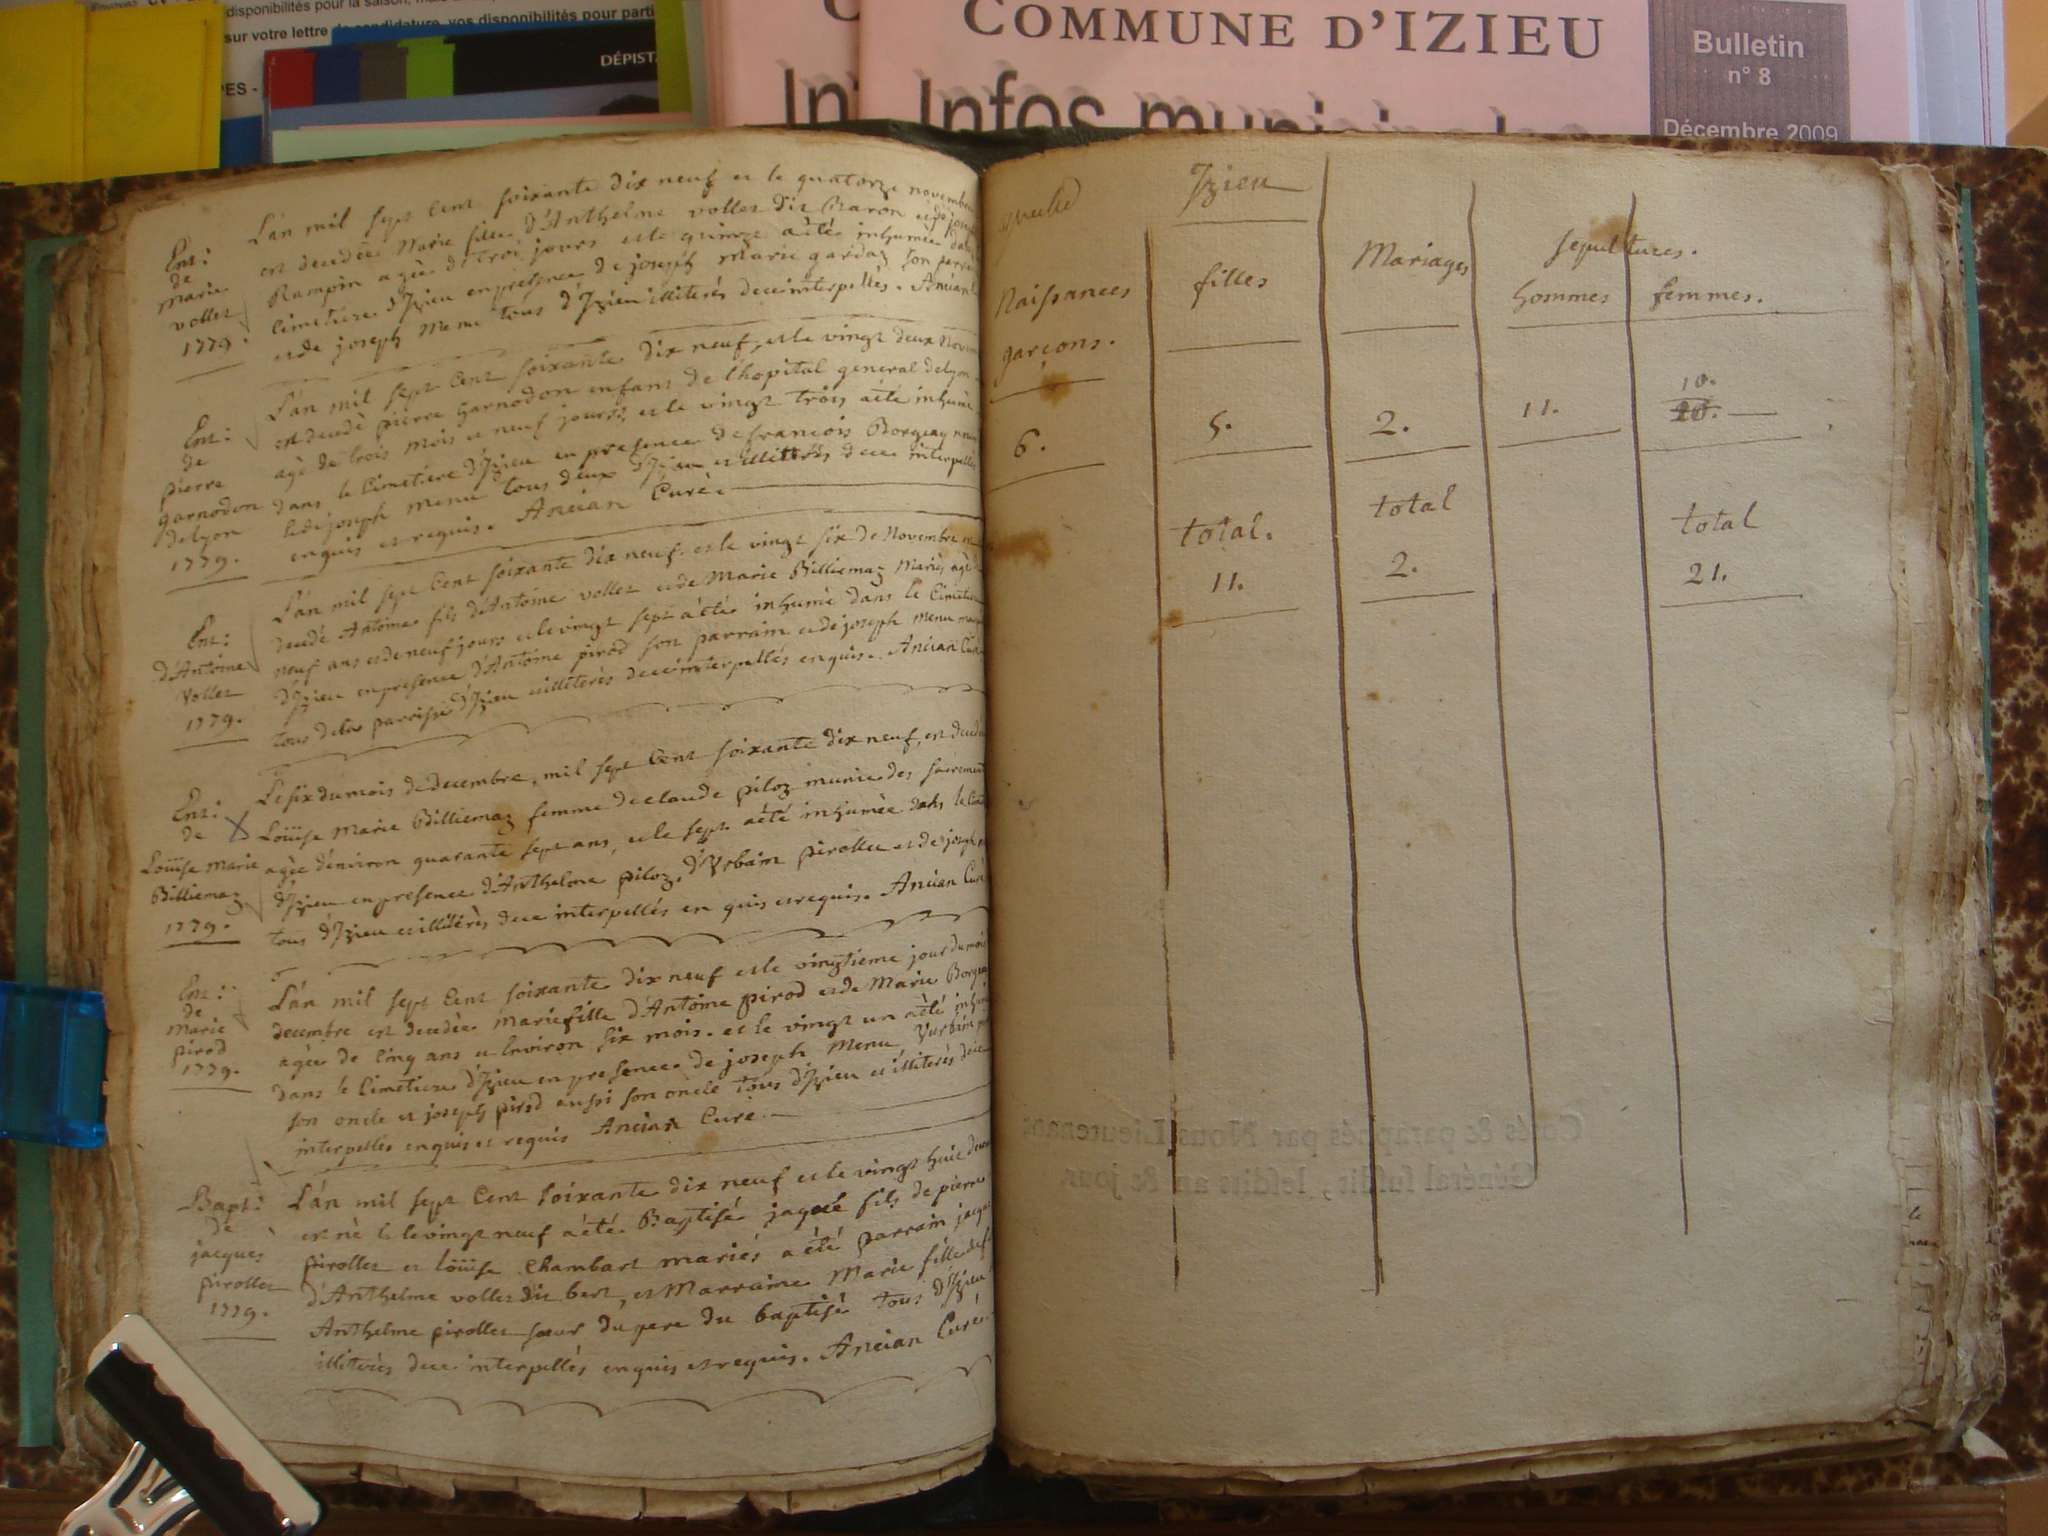 disponibilités pour la saison,
sur votre lettre de candidature, vos disponibilités pour parti
PES -
DÉPIST
COMMUNE D'IZIEU
Infos municipales
In
Bulletin
n° 8
Décembre 2009
Ent:
de
marie
vollet
1779.
L'an mil sept cent soixante dix neuf et le quatorze novembre
est decedée Marie fille d'Anthelme vollet dit Baron et de
Rampin agée de troi jours et le quinze a été inhumée dans
cimetiere d'Izieu en presence de joseph marie gardaz son
et de joseph Menu tous d'Izieu illiterés de ce interpellés. Ancian
Ent:
de
pierre
garnodon
de lyon
1779.
L'an mil sept cent soixante dix neuf, et le vingt deux Novem
est decedé pierre garnodon enfant de l'hopital general de lyon
agé de trois mois et neuf jours, et le vingt trois a été inhumé
dans le cimetiere d'Izieu en presence de francois Borgeay
et de joseph menu tous deux d'Izieu et illiterés de ce interpellés
enquis et requis. Ancian Curé.
Ent:
d'Antoine
vollet
1779.
L'an mil sept cent soixante dix neuf. et le vingt six de Novembre est
decedé Antoine fils d'Antoine vollet et de Marie Billiemaz Mariés agé de
neuf ans et de neuf jours et le vingt sept a été inhumé dans le Cimetiere
d'Izieu en presence d'Antoine pirod son parrain et de joseph menu
tous de la parroisse d'Izieu illiterés de ce interpellés enquis. Ancian Curé
Ent:
de
Loüise marie
Billiemaz
1779.
Le six du mois de decembre, mil sept cent soixante dix neuf, est decedée
Loüise Marie Billiemaz femme de claude piloz munie des sacrements
agée d'environ quarante sept ans, et le sept a été inhumée dans le Cim
d'Izieu en presence d'Anthelme piloz, d'Urbain pirollet et de joseph
tous d'Izieu et illiterés de ce interpellés en quis et requis. Ancian Curé
Ent:
de
Marie
pirod
1779.
L'an mil sept cent soixante dix neuf et le vingtieme jour du mois
decembre est decedée marie fille d'Antoine pirod et de Marie Borgeay
agée de cinq ans et environ six mois. et le vingt un a été inhum
dans le cimetiere d'Izieu en presence de joseph Menu, Vurbin
son oncle et joseph pirod aussi son oncle tous d'Izieu et illiterés de ce
interpellés enquis et requis Ancian Curé
Bapt:
de
jacques
pirollet
1779.
L'an mil sept cent soixante dix neuf et le vingt huit decem
est né et le vingt neuf a été Baptisé jaque fils de pierre
pirollet et loüise Chambart mariés a été parrain jacque
d'Anthelme vollet dit bert, et Marraine Marie fille de
Anthelme pirollet sœur du pere du baptisé tous d'Izieu
illiterés de ce interpellés enquis et requis. Ancian Curé
Izieu
Naissances filles Mariages sepultures.
garçons. hommes femmes.
10.
6. 5. 2. 11. 20.
total. total total
11. 2. 21.
Cotés & paraphés par Nous Lieutenant
Général susdit, lesdits an & jour.